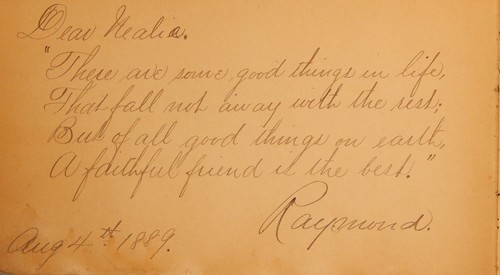 Dear Nealie.
"There are some good things in life,
That fall not away with the rest;
But of all good things on earth,
A faithful friend is the best."
Raymond.
Aug 4th 1889.